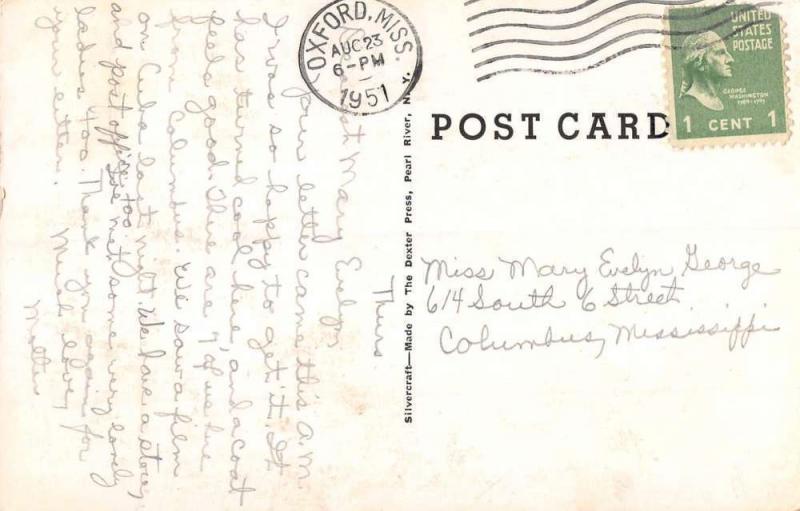 OXFORD, MISS.
AUG 23
6-PM
1951
UNITED
STATES
POSTAGE
GEORGE
WASHINGTON
1789-1797
1 CENT 1
POST CARD
Silvercraft—Made by The Dexter Press, Pearl River, N. Y.
Miss Mary Evelyn George
614 South 6 Street
Columbus, Mississippi
Thurs
Mary Evelyn,
Your letter came this a.m.
I was so happy to get it. It
has turned cool here, and a coat
feels good. There are 7 of us here
from Columbus. We saw a film
on Cuba last night. We have a store,
and post office, too. We met some very lovely
ladies too. Thank you again for
your letter. Much love,
Mother